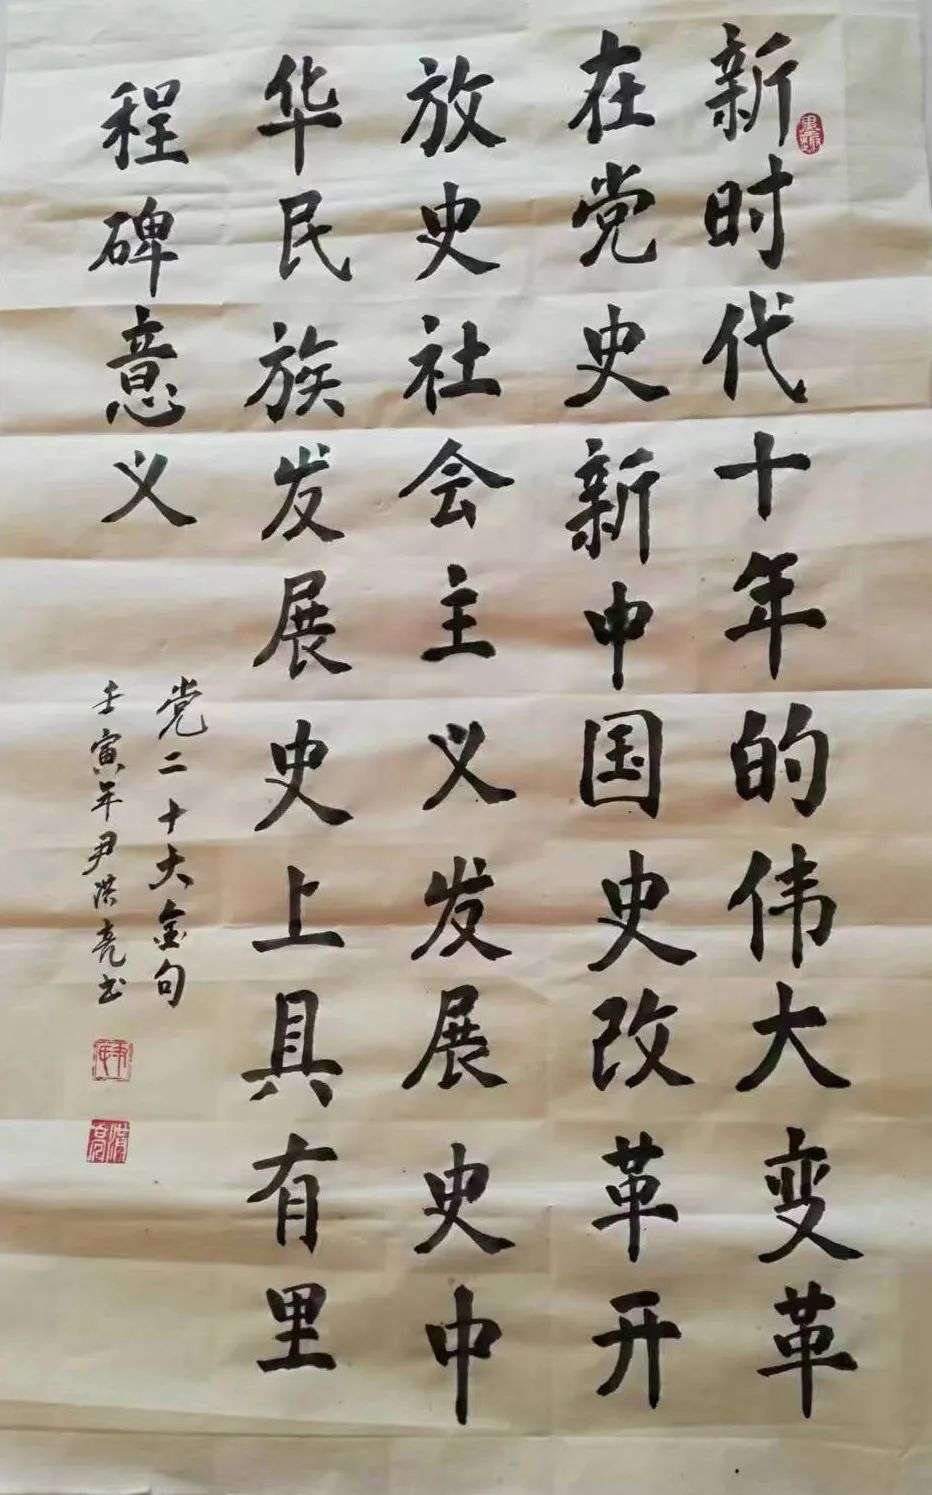 新时代十年的伟大变革
在党史新中国史改革开
放史社会主义发展史中
华民族发展史上具有里
程碑意义
党二十大金句
壬寅年尹洪亮书